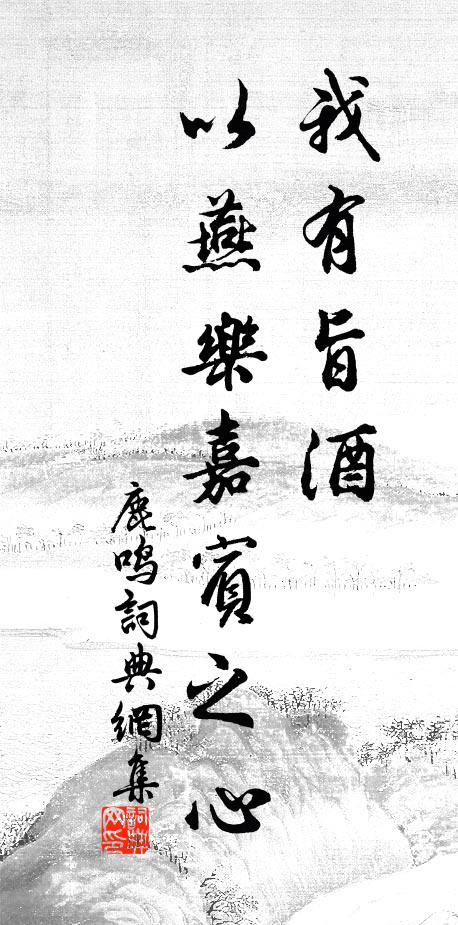 我有旨酒
以燕樂嘉賓之心
鹿鳴詞典網集